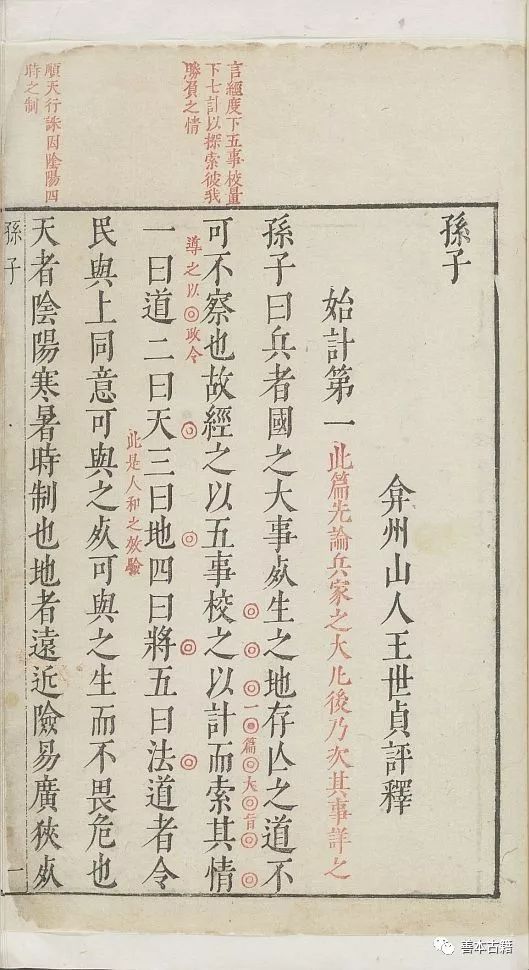 言經度下五事校量
下七計以探索彼我
勝負之情
順天行誅因陰陽四
時之制
孫子
弇州山人王世貞評釋
始計第一 此篇先論兵家之大凡後乃次其事詳之
孫子曰兵者國之大事死生之地存亾之道不
一篇大旨
可不察也故經之以五事校之以計而索其情
導之以政令
一曰道二曰天三曰地四曰將五曰法道者令
此是人和之效驗
民與上同意可與之死可與之生而不畏危也
天者陰陽寒暑時制也地者遠近險易廣狹死
孫子
一
善本古籍